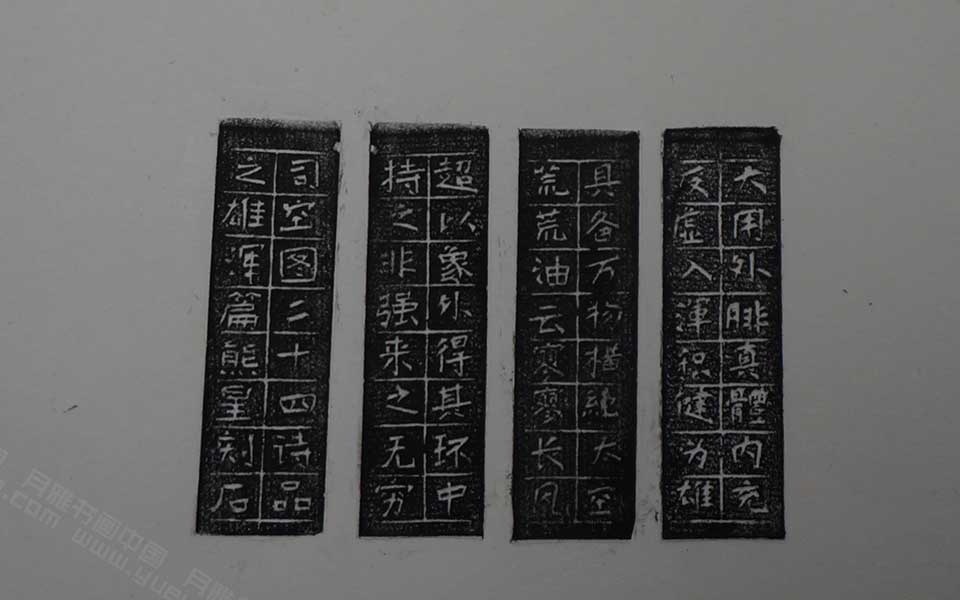 大用外腓真體内充
反虚入渾积健为雄
具备万物横絶太空
荒荒油云寥寥长风
超以象外得其环中
持之非强来之无穷
司空图二十四诗品
之雄渾篇熊星刻石
月雅书画中国